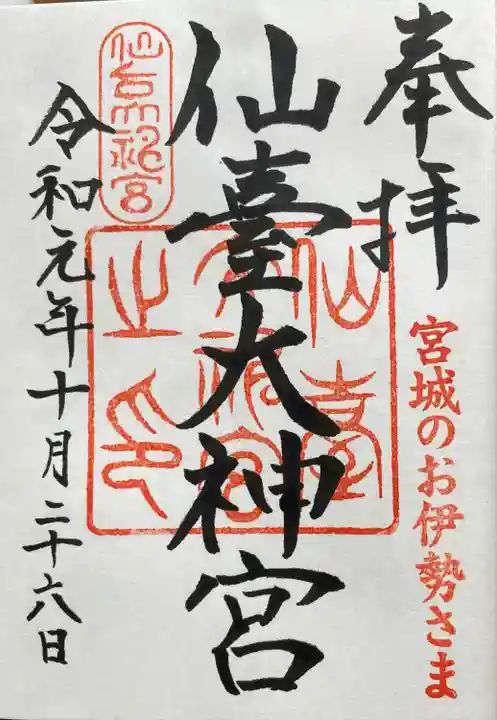 奉拝
宮城のお伊勢さま
仙臺大神宮
仙臺
大神宮
之印
仙台大神宮
令和元年十月二十六日